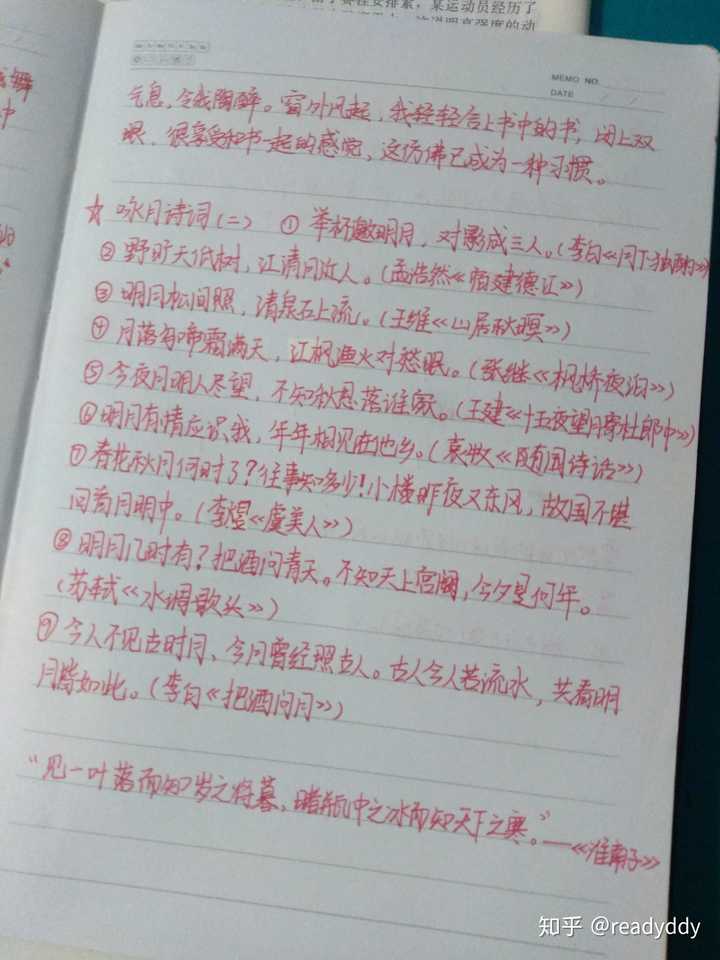 某运动员经历了
MEMO NO.
DATE
气息,令我陶醉。窗外风起,我轻轻合上书中的书,闭上双
眼,很享受和书一起的感觉,这仿佛已成为一种习惯。
☆ 咏月诗词(二) ① 举杯邀明月,对影成三人。(李白《月下独酌》)
② 野旷天低树,江清月近人。(孟浩然《宿建德江》)
③ 明月松间照,清泉石上流。(王维《山居秋暝》)
④ 月落乌啼霜满天,江枫渔火对愁眠。(张继《枫桥夜泊》)
⑤ 今夜月明人尽望,不知秋思落谁家。(王建《十五夜望月寄杜郎中》)
⑥ 明月有情应识我,年年相见在他乡。(袁枚《随园诗话》)
⑦ 春花秋月何时了?往事知多少!小楼昨夜又东风,故国不堪
回首月明中。(李煜《虞美人》)
⑧ 明月几时有?把酒问青天。不知天上宫阙,今夕是何年。
(苏轼《水调歌头》)
⑨ 今人不见古时月,今月曾经照古人。古人今人若流水,共看明
月皆如此。(李白《把酒问月》)
“见一叶落而知岁之将暮,睹瓶中之冰而知天下之寒。”——《淮南子》
知乎 @readyddy